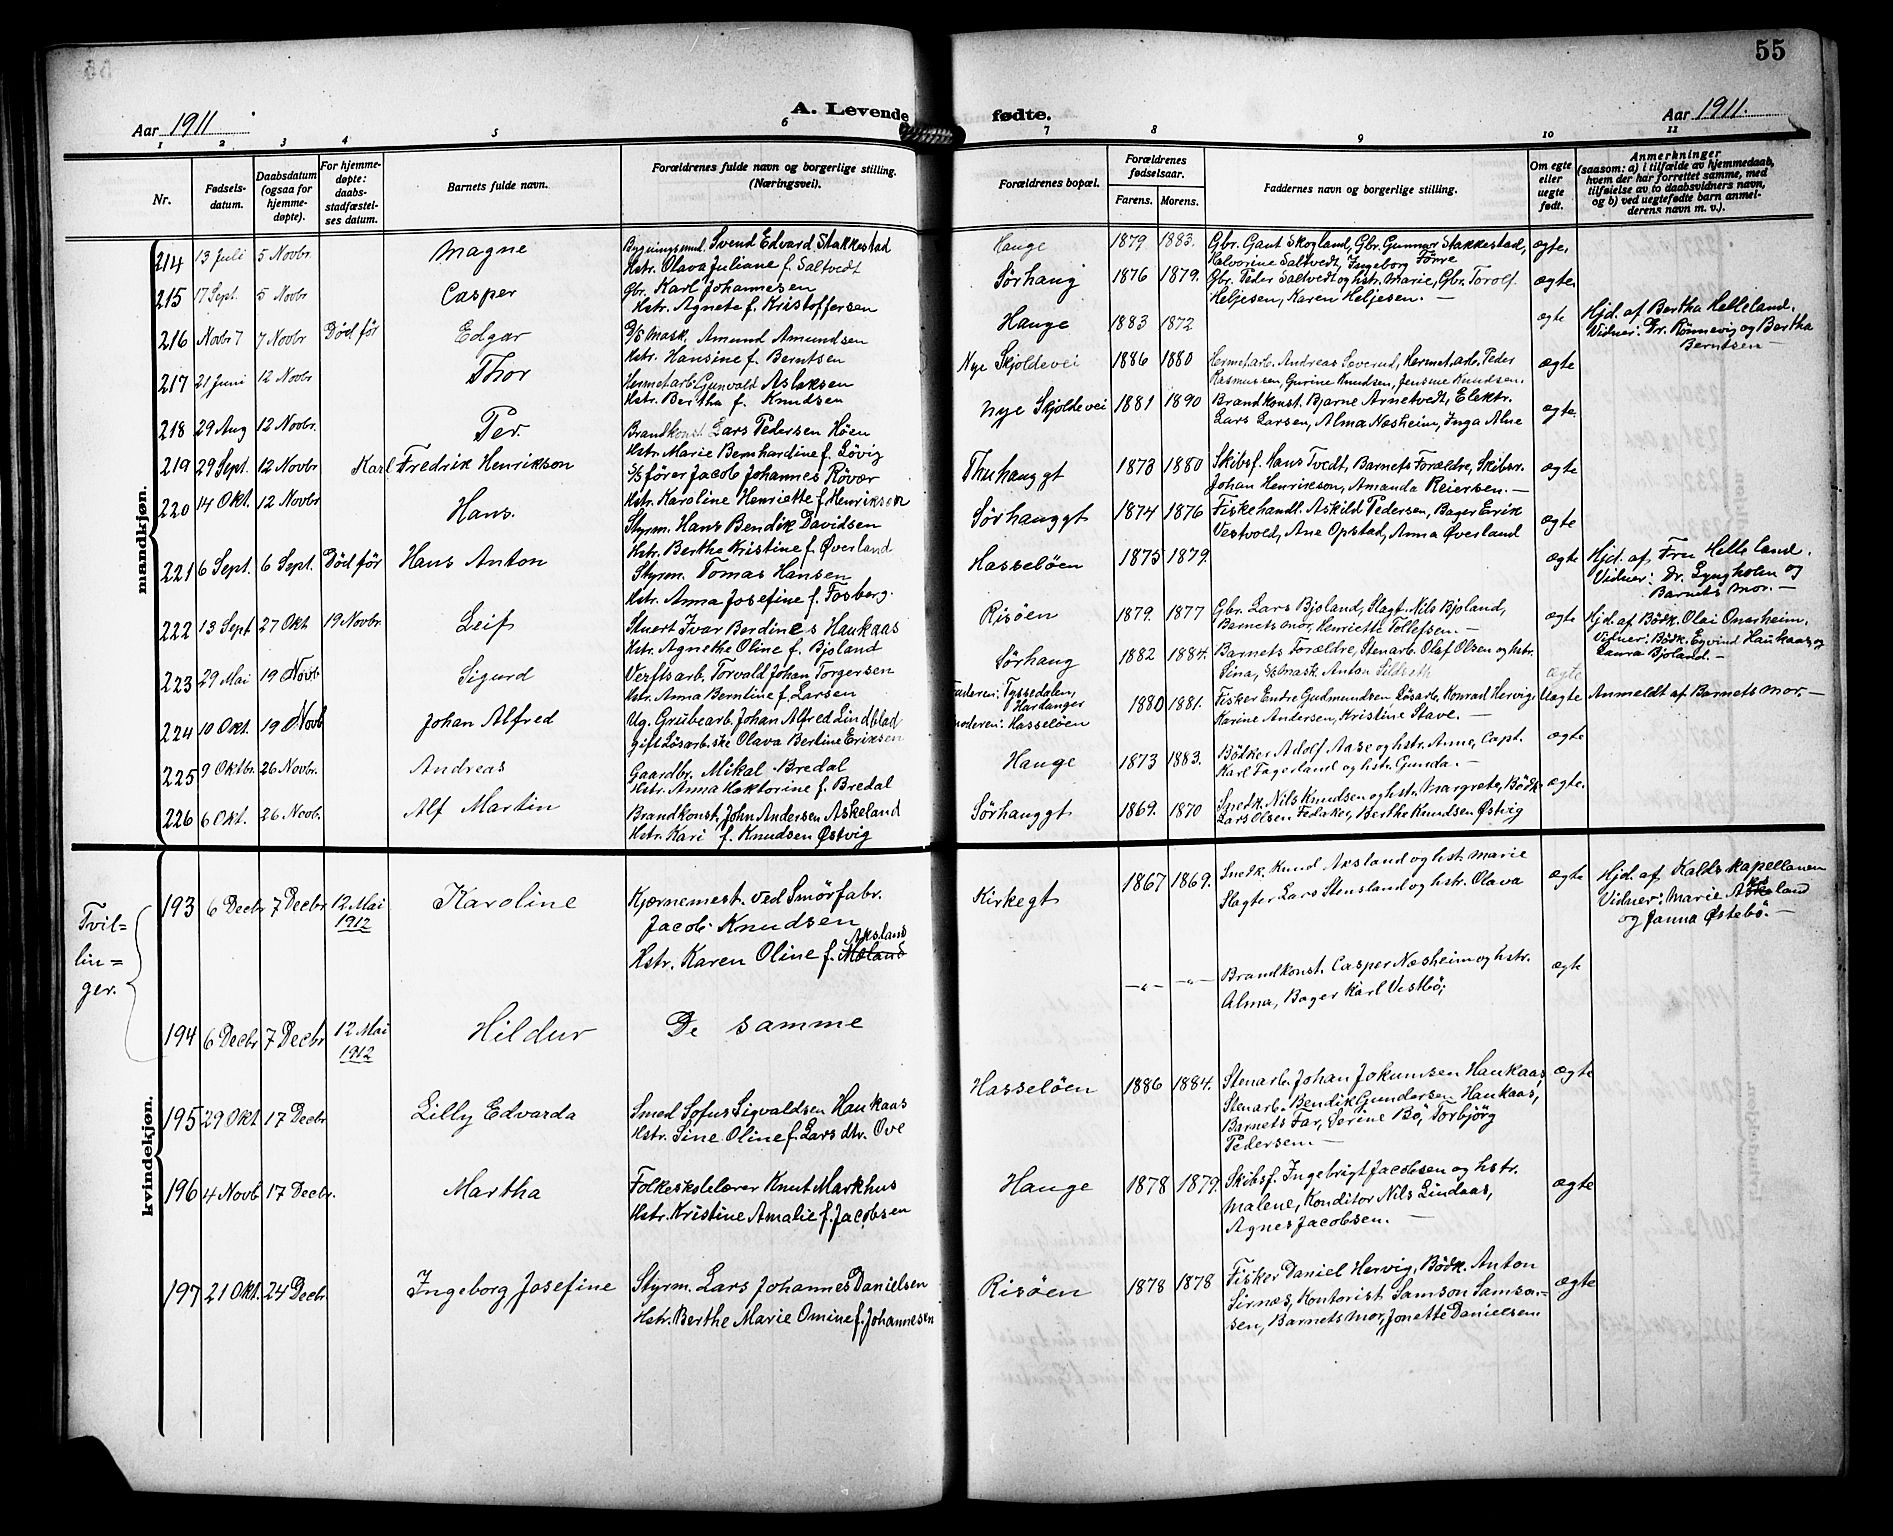 55
A. Levende fødte.
Aar 1911
Aar 1911.
1 2 3 4 5 6 7 8 9 10 11
Nr.
Fødsels-
datum.
Daabsdatum
(ogsaa for
hjemme-
døpte).
For hjemme-
døpte:
daabs-
stadfæstel-
ses datum.
Barnets fulde navn.
Forældrenes fulde navn og borgerlige stilling.
(Næringsvei).
Forældrenes bopæl.
Forældrenes
fødselsaar.
Farens. Morens.
Faddernes navn og borgerlige stilling.
Om egte
eller
uegte
født.
Anmerkninger
(saasom: a) i tilfælde av hjemmedaab,
hvem der har forrettet samme, med
tilføielse av to daabsvidners navn,
og b) ved uegtefødte barn anmel-
derens navn m. v.).
mandkjøn.
214 13 Juli 5 Novbr Magne
Bygningssnd. Svend Edvard Stakkestad
Hstr. Olava Juliane f. Saltvedt
Hauge 1879 1883.
Gbr. Gaut Skogland, Gbr. Gunnar Stakkestad,
Halvorine Saltvedt, Ingeborg Förre
ægte.
215 17 Sept. 5 Novbr Casper
Gbr. Karl Johannesen
Hstr. Agnete f. Kristoffersen
Sørhaug 1876 1879.
Gbr. Peder Saltvedt og hstr. Marie, Gbr. Torolf
Heljesen, Karen Heljesen. —
ægte.
216 Novbr 7 7 Novbr Död för Edgar
D/S Mask. Amund Amundsen
Hstr. Hansine f. Berntsen
Hauge 1883 1872
ægte
Hjd. af Bertha Helleland.
Vidner: Dr. Rönnevig og Bertha
Berntsen —
217 21 Juni 12 Novbr Thor
Hermetarb. Gunvald Aslaksen
Hstr. Bertha f. Knudsen
Nye Skjoldevei 1886 1880
Hermetarb. Andreas Severud, Hermetarb. Peder
Rasmussen, Gurine Knudsen, Jensine Knudsen.
ægte
218 29 Aug 12 Novbr. Per.
Brandkonst Lars Pedersen Höen
Hstr. Marie Bernhardine f. Lövig
Nye Skjoldevei 1881 1890
Brandkonst. Bjarne Arnetvedt, Elektr.
Lars Larsen, Alma Næsheim, Inga Alne
ægte.
219 29 Sept. 12 Novbr Karl Fredrik Henrikson
S/S förer Jacob Johannes Rövær
Hstr. Karoline Henriette f. Henriksen
Thuhauggt 1873 1880
Skibsf. Hans Tvedt, Barnets Forældre, Skibsr.
Johan Henrikson, Amanda Reiersen. —
ægte
220 14 Okt. 12 Novbr Hans.
Styrm. Hans Bendik Davidsen
Hstr. Berthe Kristine f. Øverland
Sörhauggt 1874 1876
Fiskehandl. Askild Pedersen, Bager Erik
Vestvold, Ane Opstad, Anna Øverland
ægte
221 6 Sept. 6 Sept. Död för Hans Anton
Styrm. Tomas Hansen
Hstr. Anna Josefine f. Fosberg.
Hasselöen 1875 1879.
ægte
Hjd. af Fru Helleland.
Vidner: Dr. Lyngholm og
Barnets Mor. —
222 13 Sept 27 Okt 19 Novbr. Leif
Stuert Ivar Berdines Haukaas
Hstr. Agnethe Oline f. Bjoland
Risöen 1879. 1877
Gbr. Lars Bjoland, Slagt. Nils Bjoland,
Barnets Mor, Henriette Tollefsen. —
ægte
Hjd. af Bödk. Olai Onarheim.
Vidner: Bödk. Eyvind Haukaas og
Laura Bjoland. —
223 29 Mai 19 Novb Sigurd
Verftsarb. Torvald Johan Torgersen
Hstr. Anna Berntine f. Larsen
Sörhaug 1882 1884.
Barnets Forældre, Stenarb. Olaf Olsen og hstr.
Sina, Mask. Anton
ægte
224 10 Okt. 19 Novb Johan Alfred
Ug. Grubearb. Johan Alfred Lindblad
gift Løsarb.ske Olava Bertine Eriksen
Faderen: Tyssedalen,
Hardanger
Moderen: Hasselöen
1880 1881.
Fisker Endre Gudmundsen, Løsarb. Konrad Hervig,
Karine Andersen, Kristine Stave. —
Uægte
Anmeldt af Barnets Mor. —
225 9 Oktbr. 26 Novbr. Andreas
Gaardbr. Mikal Bredal
Hstr. Anna Haktorine f. Bredal
Hauge 1873 1883.
Bödker Adolf Aase og hstr. Anne, Capt.
Karl Fagerland og hstr. Gunda. —
ægte
226 6 Okt. 26 Novb. Alf Martin
Brandkonst. John Andersen Askeland
Hstr. Kari f. Knudsen Østvig
Sörhauggt 1869. 1870
Snedk. Nils Knudsen og hstr. Margrete, Bödk.
Lars Olsen Fedøker, Berthe Knudsen Østvig
ægte.
kvindekjøn.
Tvil-
lin=
ger.
193 6 Decbr 7 Decbr 12 Mai
1912
Karoline
Kjærnemest. ved Smörfabr.
Jacob Knudsen
Aksland
Hstr. Karen Oline f. Mæland
Kirkegt 1867 1869.
Snedk. Knud Aksland og hst. Marie
Slagter Lars Stensland og hstr. Olava
ægte
Hjd. af Kaldskapellanen
Vidner: Marie Aksland
og Janna Østebö. —
194 6 Decbr 7 Decbr 12 Mai
1912
Hildur
De samme
—"— —"—
Brandkonst. Casper Næsheim og hstr.
Alma, Bager Karl Vestbö,
ægte
195 29 Okt 17 Decbr Lilly Edvarda
Smed Sofus Sigvaldsen Haukaas
Hstr. Sine Oline f. Lars dtr. Ove
Hasselöen 1886 1884.
Stenarb. Johan Jokumsen Haukaas,
Stenarb. Bendik Gundersen Haukaas,
Barnets Far, Serine Bö, Torbjörg
Pedersen. —
ægte
196 4 Novb 17 Decbr. Martha
Folkeskolelærer Knut Markhus
Hstr. Kristine Amalie f. Jacobsen
Hauge 1878 1879.
Skibsf. Ingebrigt Jacobsen og hstr.
Malene, Konditor Nils Lindaas,
Agnes Jacobsen. —
ægte
197 21 Okt. 24 Decbr Ingeborg Josefine
Styrm. Lars Johannes Danielsen
Hstr. Berthe Marie Omine f. Johannesen
Risöen 1878 1878
Fisker Daniel Hervig, Bödk. Anton
Sirnæs, Kontorist Samson Samson=
sen, Barnets Mor, Jonette Danielsen
ægte